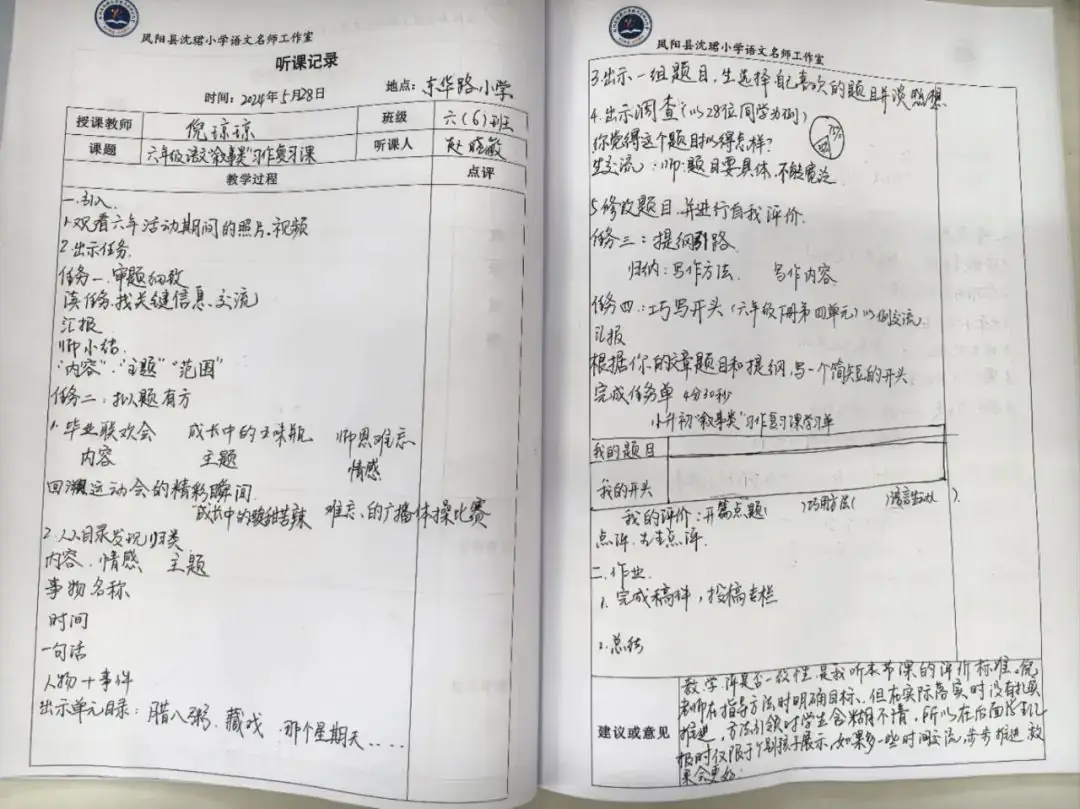 凤阳县沈珺小学语文名师工作室
听课记录
时间：2024年5月28日 地点：东华路小学
授课教师 倪琼琼 班级 六（6）班
课题 六年级语文“叙事类”习作复习课 听课人 赵晓敏
教学过程 点评
一.引入
1.观看六年活动期间的照片.视频
2.出示任务.
任务一.审题细致
读任务.找关键信息.交流
汇报
师小结.
“内容”.“主题”“范围”
任务二：拟题有方
1.毕业联欢会 成长中的五味瓶 师恩难忘
内容 主题 情感
回溯运动会的精彩瞬间
成长中的酸甜苦辣 难忘的广播体操比赛
2.从目录发现归类
内容.情感 主题
事物名称
时间
一句话
人物+事件
出示单元目录：腊八粥.藏戏.那个星期天....
凤阳县沈珺小学语文名师工作室
3.出示一组题目，生选择自己喜欢的题目并谈感想
4.出示调查（以28位同学为例）
你觉得这个题目拟得怎样？
生交流：师：题目要具体，不能宽泛.
5.修改题目.并进行自我评价.
任务三：提纲引路.
归纳：写作方法. 写作内容
任务四：巧写开头（六年级下册第四单元）以例交流
汇报
根据你的文章题目和提纲，写一个简短的开头
完成任务单 4分30秒
小升初“叙事类”习作复习课学习单
我的题目
我的开头
我的评价：开篇点题（ ）巧用方法（ ）语言生动（ ）.
点评.
二.作业.
1.完成稿件，投稿专栏
2.总结
建议或意见
教学评是否一致性是我听本节课的评价标准.倪
老师在指导方法时明确目标、但在实际落实时没有扎实
推进，方法引领时学生含糊不清，所以在后面
报时仅限于个别孩子展示，如果多一些时间交流，步步推进，效
果会更好.